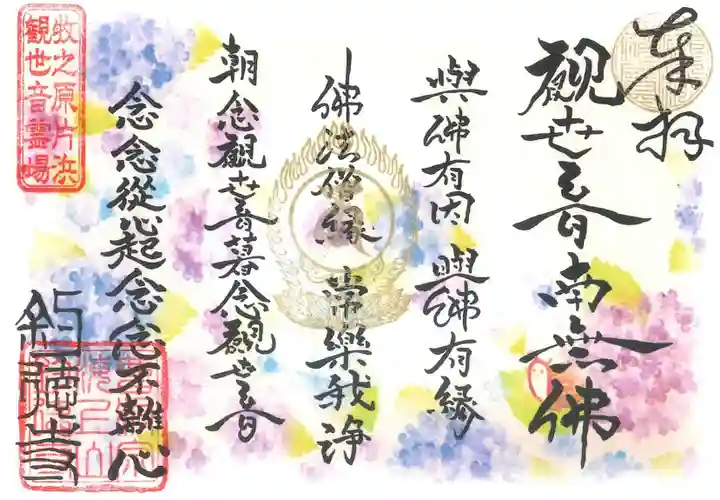 奉拝
觀世音南無佛
與佛有因 與佛有縁
佛法僧縁 常樂我浄
朝念觀世音暮念觀世音
念念從心起念念不離心
牧之原片浜
観世音霊場